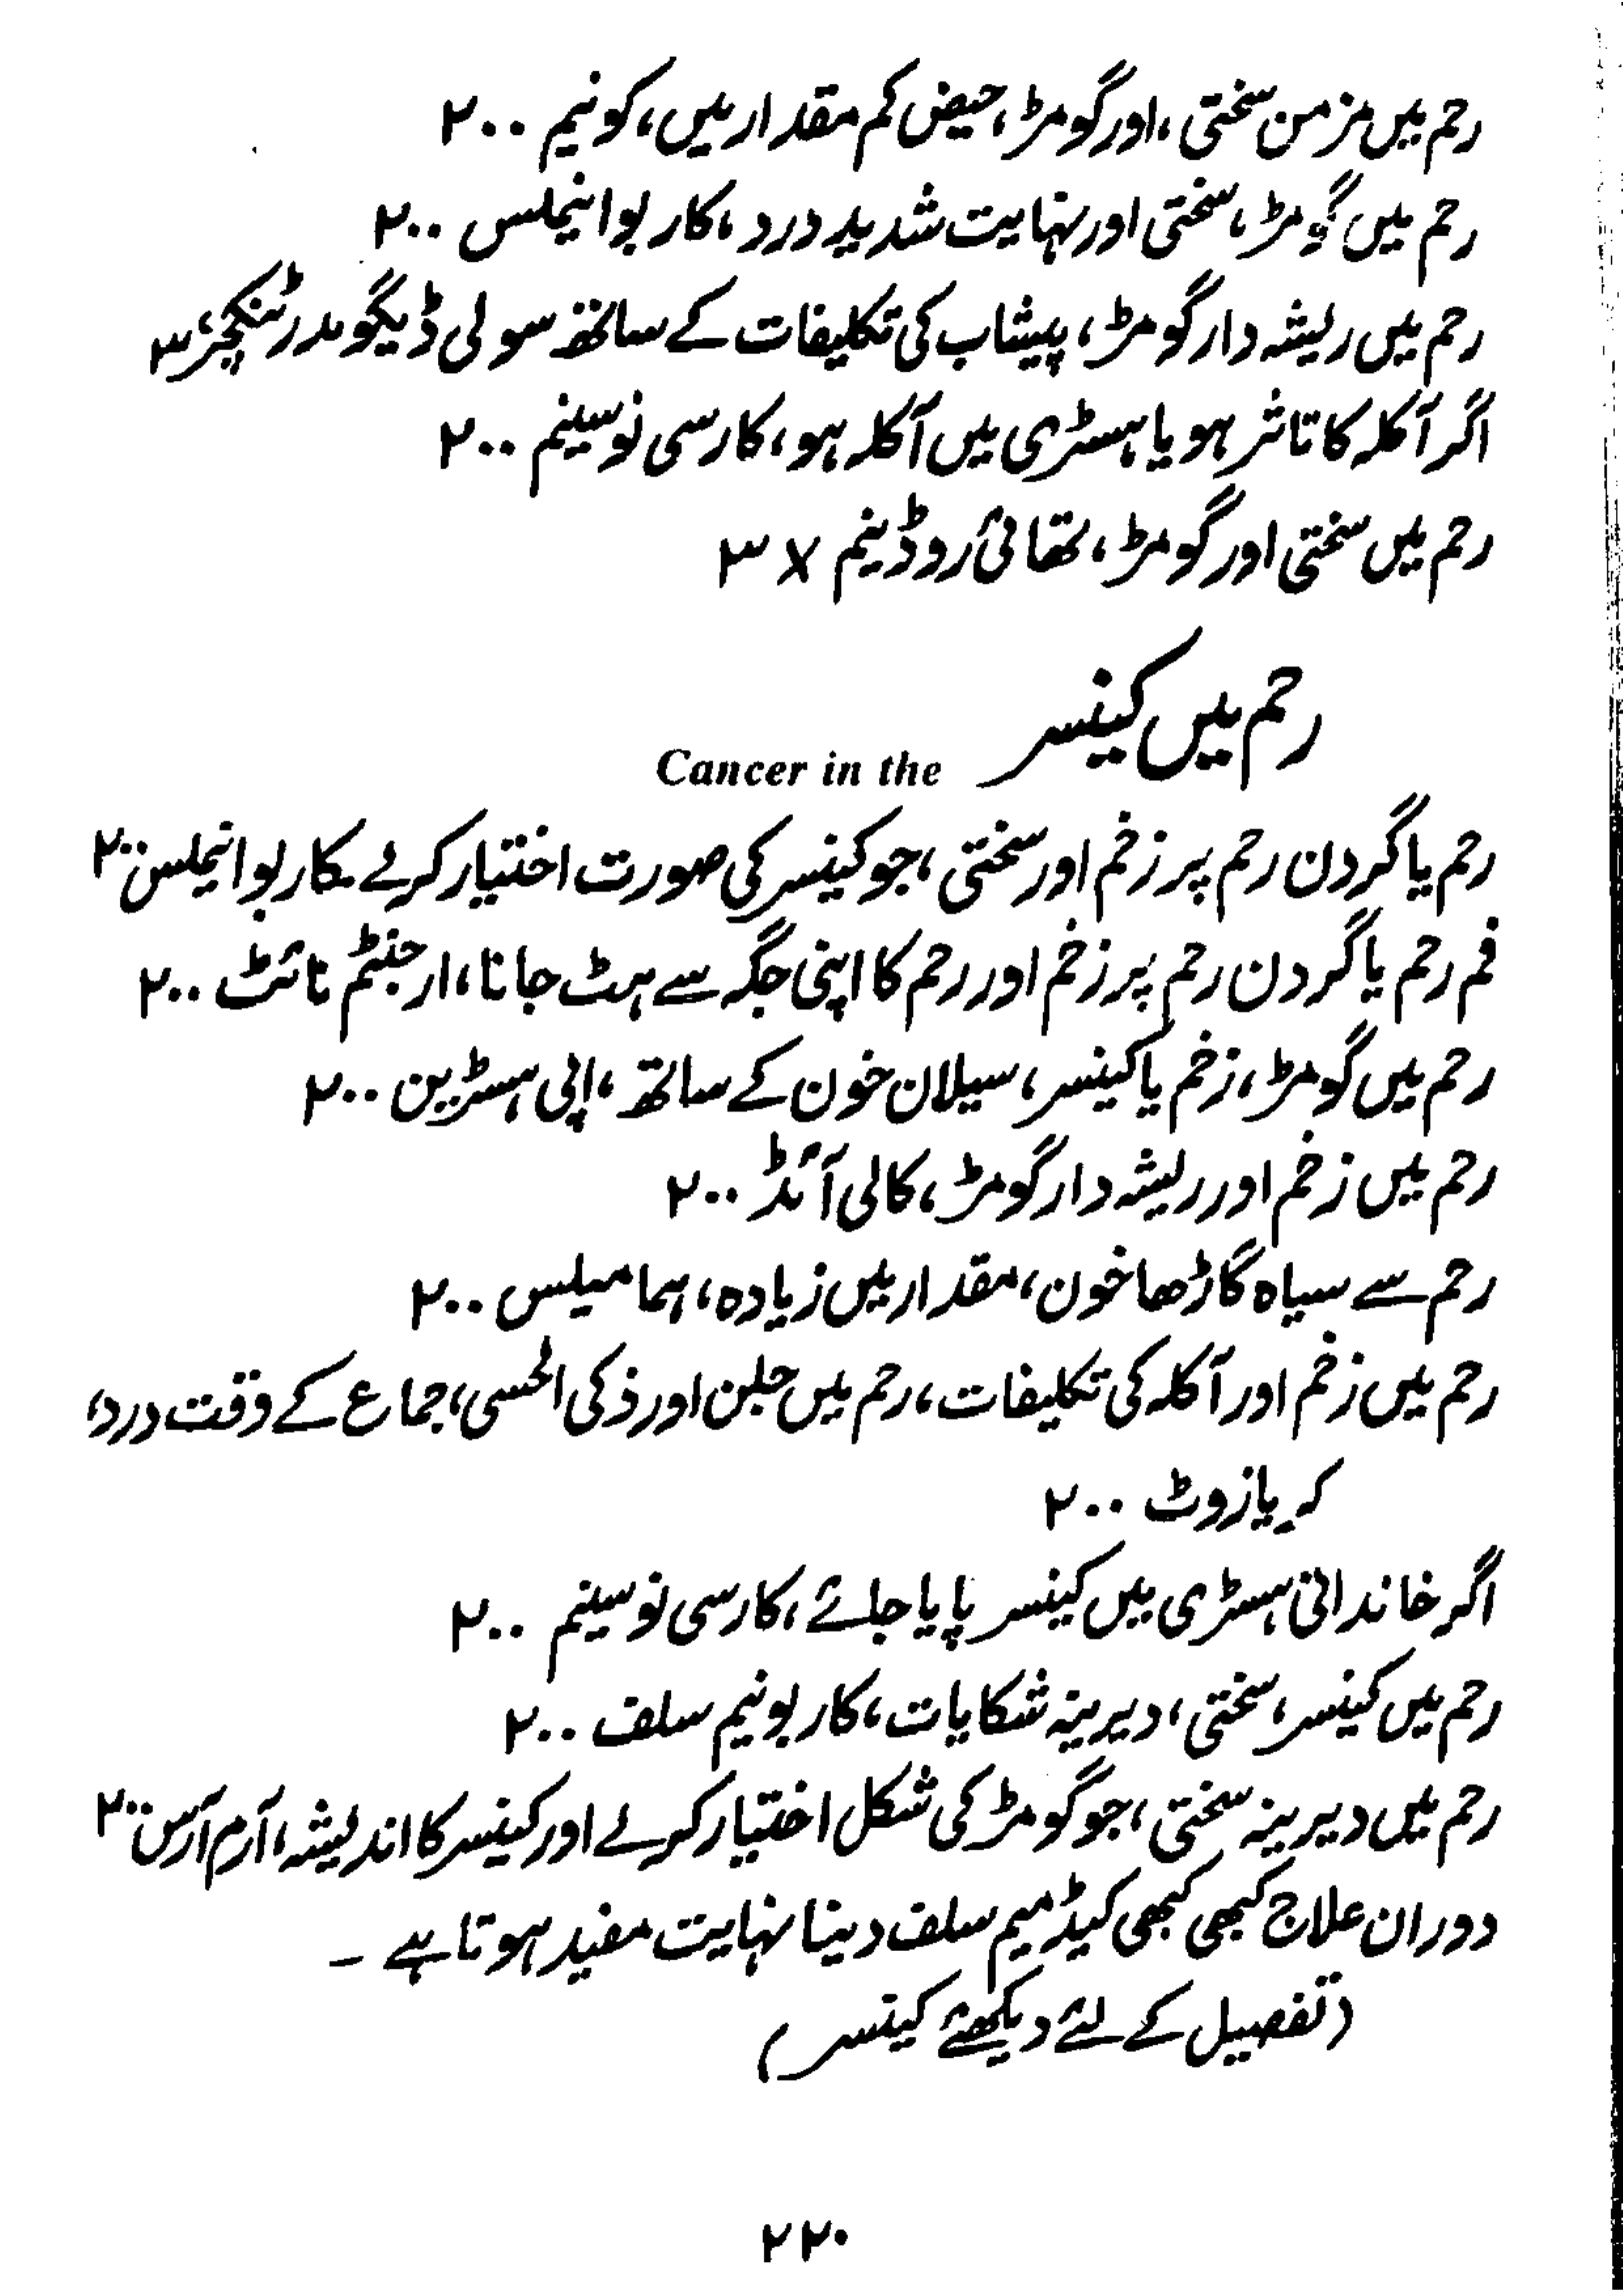 رحم میں مزمن سختی، اور گومڑ، حیض کم مقدار میں، کونیم ۲۰۰
رحم میں گومڑ، سختی اور نہایت شدید درد، کاربو انیملس ۲۰۰
رحم میں ریشہ دار گومڑ، پیشاب کی تکلیفات کے ساتھ سولی ڈیگو مدر ٹنکچر، ۳
اگر آکلہ کا تاثر ہو یا ہسٹری میں آکلہ ہو، کارسی نوسینم ۲۰۰
رحم میں سختی اور گومڑ، تھائی روڈینم ۳x
رحم میں کینسر Cancer in the
رحم یا گردن رحم پر زخم اور سختی، جو کینسر کی صورت اختیار کرلے۔ کاربو انیملس ۲۰۰
فم رحم یا گردن رحم پر زخم اور رحم کا اپنی جگہ سے ہٹ جانا، ارجنٹم نائٹ ۲۰۰
رحم میں گومڑ، زخم یا کینسر، سیلان خون کے ساتھ، اپی ہسٹرین ۲۰۰
رحم میں زخم اور ریشہ دار گومڑ، کالی آئڈ ۲۰۰
رحم سے سیاہ گاڑھا خون، مقدار میں زیادہ، ہمامیلس ۲۰۰
رحم میں زخم اور آکلہ کی تکلیفات، رحم میں جلن اور ذکی الحسی، جماع کے وقت درد،
کریازوٹ ۲۰۰
اگر خاندانی ہسٹری میں کینسر پایا جائے، کارسی نوسینم ۲۰۰
رحم میں کینسر، سختی، دیرینہ شکایات، کاربونیم سلف ۲۰۰
رحم میں دیرینہ سختی، جو گومڑ کی شکل اختیار کرلے اور کینسر کا اندیشہ، آرم آرس ۲۰۰
دوران علاج کبھی کبھی کیڈمیم سلف دینا نہایت مفید ہوتا ہے ۔
(تفصیل کے لئے دیکھئے کینسر)
۲۲۰